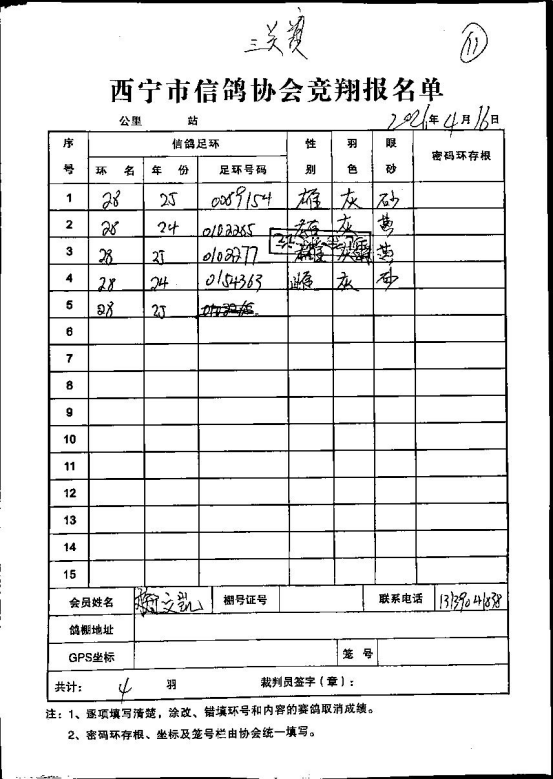 三关赛 11
西宁市信鸽协会竞翔报名单
公里 站 2026年4月16日
序号 信鸽足环 性别 羽色 眼砂 密码环存根
环名 年份 足环号码
1 28 25 0089154 雄 灰 砂
2 28 24 0102265 雄 灰 黄
3 28 25 0102277 雄 灰 黄
4 28 24 0154363 雌 灰 砂
5 28 25
6
7
8
9
10
11
12
13
14
15
会员姓名 文凯 棚号证号 联系电话
鸽棚地址
GPS坐标 笼号
共计: 4 羽 裁判员签字(章):
注:1、逐项填写清楚,涂改、错填环号和内容的赛鸽取消成绩。
2、密码环存根、坐标及笼号栏由协会统一填写。